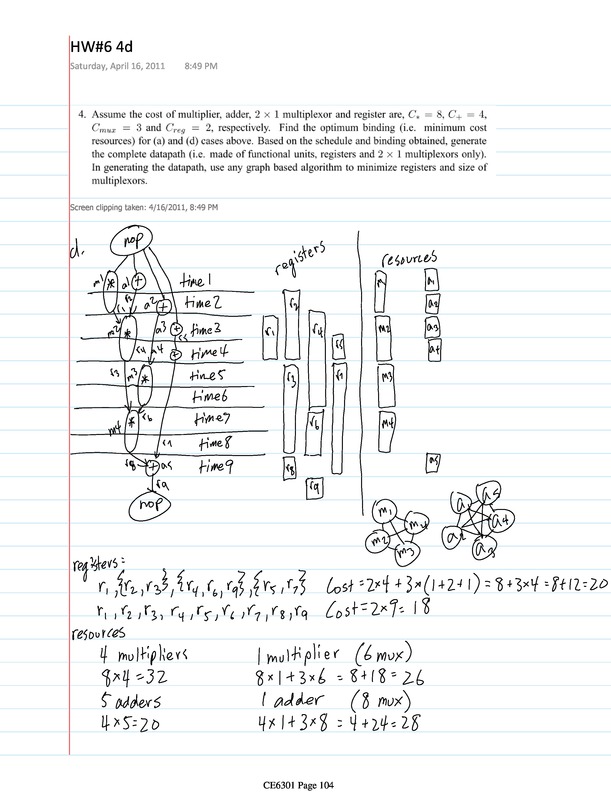 HW#6 4d
Saturday, April 16, 2011 8:49 PM
4. Assume the cost of multiplier, adder, 2 × 1 multiplexor and register are, C* = 8, C+ = 4,
Cmux = 3 and Creg = 2, respectively. Find the optimum binding (i.e. minimum cost
resources) for (a) and (d) cases above. Based on the schedule and binding obtained, generate
the complete datapath (i.e. made of functional units, registers and 2 × 1 multiplexors only).
In generating the datapath, use any graph based algorithm to minimize registers and size of
multiplexors.
Screen clipping taken: 4/16/2011, 8:49 PM
d. nop registers resources
m1 * a1 + time1 a1
r1 r2 a2 + time2 r2 a2
m2 * a3 + time3 r1 r4 m2 a3
r4 a4 + r5 time4 r5 a4
r3 m3 * time5 r3 r7 m3
time6
m4 * r6 time7 r6 m4
r7 time8
r8 + a5 time9 r8 a5
r9 r9
nop
m1 m2 m3 m4 a1 a2 a3 a4 a5
registers:
r1, {r2, r3}, {r4, r6, r9}, {r5, r7} Cost = 2×4 + 3×(1+2+1) = 8+3×4 = 8+12 = 20
r1, r2, r3, r4, r5, r6, r7, r8, r9 Cost = 2×9 = 18
resources
4 multipliers 1 multiplier (6 mux)
8×4 = 32 8×1 + 3×6 = 8+18 = 26
5 adders 1 adder (8 mux)
4×5 = 20 4×1 + 3×8 = 4+24 = 28
CE6301 Page 104